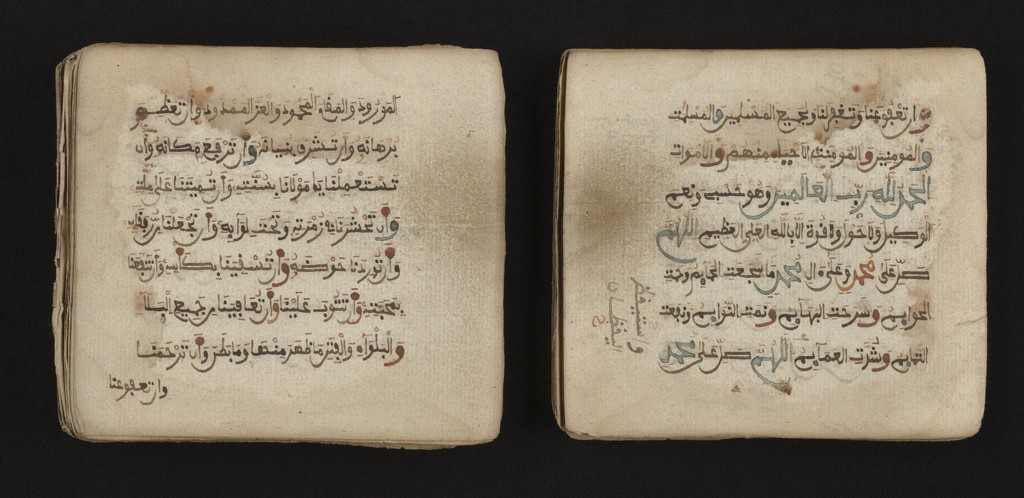 المورود والمقام المحمود والعز الممدود وان تعظم
برهانه وان تشرف بنيانه وان ترفع مكانه وان
تستعملنا يا مولانا بسنته وان تميتنا على ملته
وان تحشرنا في زمرته وتحت لوايه وان تجعلنا من رفقايه
وان توردنا حوضه وان تسقينا بكاسه وان تنفعنا
بمحبته وان تتوب علينا وان تعافينا من جميع البلاء
والبلواء والفتن ما ظهر منها وما بطن وان ترحمنا
وان تعفو عنا
وان تعفو عنا وتغفر لنا ولجميع المسلمين والمسلمت
والمومنين والمومنت الاحياء منهم والاموات
الحمد لله رب العالمين وهو حسبي ونعم
الوكيل ولا حول ولا قوة الا بالله العلي العظيم اللهم
صل على محمد وعلى ءال محمد ما سجعت الحمايم وحمت
الحوايم وسرحت البهايم ونمت النوايم ونفعت
التمايم وشدت العمايم اللهم صل على محمد